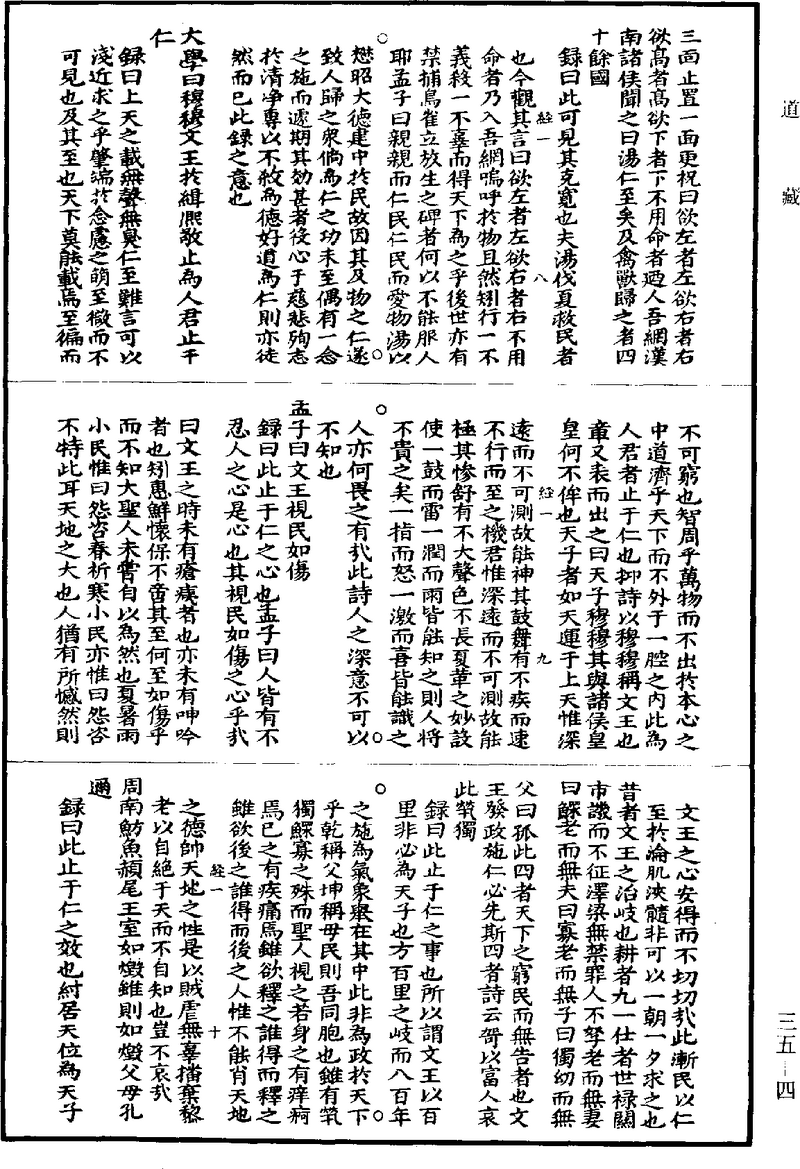 道藏
三面止置一面更祝曰欲左者左欲右者右
欲高者高欲下者下不用命者廼入吾網漢
南諸侯聞之曰湯仁至矣及禽獸歸之者四
十餘國
錄曰此可見其克寬也夫湯伐夏救民者
經一 八
也今觀其言曰欲左者左欲右者右不用
命者乃入吾網嗚呼於物且然矧行一不
義殺一不辜而得天下為之乎後世亦有
禁捕鳥雀立放生之碑者何以不能服人
耶孟子曰親親而仁民仁民而愛物湯以
懋昭大德建中於民故因其及物之仁遂
致人歸之衆倘為仁之功未至偶有一念
之施而遽期其効甚者役心于慈悲殉志
於清淨專以不殺為德好道為仁則亦徒
然而已此錄之意也
大學曰穆穆文王於緝熙敬止為人君止于
仁
錄曰上天之載無聲無臭仁至難言可以
淺近求之乎肇端於念慮之萌至微而不
可見也及其至也天下莫能載焉至徧而
不可窮也智周乎萬物而不出於本心之
中道濟乎天下而不外于一腔之内此為
人君者止于仁也抑詩以穆穆稱文王也
章又表而出之曰天子穆穆其與諸侯皇
皇何不侔也天子者如天運于上天惟深
經一 九
遠而不可測故能神其鼓舞有不疾而速
不行而至之機君惟深遠而不可測故能
極其慘舒有不大聲色不長夏革之妙設
使一鼓而雷一潤而雨皆能知之則人將
不貴之矣一指而怒一激而喜皆能識之
人亦何畏之有哉此詩人之深意不可以
不知也
孟子曰文王視民如傷
錄曰此止于仁之心也孟子曰人皆有不
忍人之心是心也其視民如傷之心乎哉
曰文王之時未有瘡痍者也亦未有呻吟
者也矧惠鮮懷保不啻其至何至如傷乎
而不知大聖人未嘗自以為然也夏暑雨
小民惟曰怨咨春祈寒小民亦惟曰怨咨
不特此耳天地之大也人猶有所憾然則
文王之心安得而不切切哉此漸民以仁
至於淪肌浹髓非可以一朝一夕求之也
昔者文王之治岐也耕者九一仕者世祿關
市譏而不征澤梁無禁罪人不孥老而無妻
曰鰥老而無夫曰寡老而無子曰獨幼而無
父曰孤此四者天下之窮民而無告者也文
王發政施仁必先斯四者詩云哿以富人哀
此㷀獨
錄曰此止于仁之事也所以謂文王以百
里非必為天子也方百里之岐而八百年
之施為氣象舉在其中此非為政於天下
乎乾稱父坤稱母民則吾同胞也雖有㷀
獨鰥寡之殊而聖人視之若身之有痒疴
焉已之有疾痛焉雖欲釋之誰得而釋之
雖欲後之誰得而後之人惟不能肖天地
經一 十
之德帥天地之性是以賊虐無辜播棄黎
老以自絕于天而不自知也豈不哀哉
周南魴魚頳尾王室如燬雖則如燬父母孔
邇
錄曰此止于仁之效也紂居天位為天子
三五—四